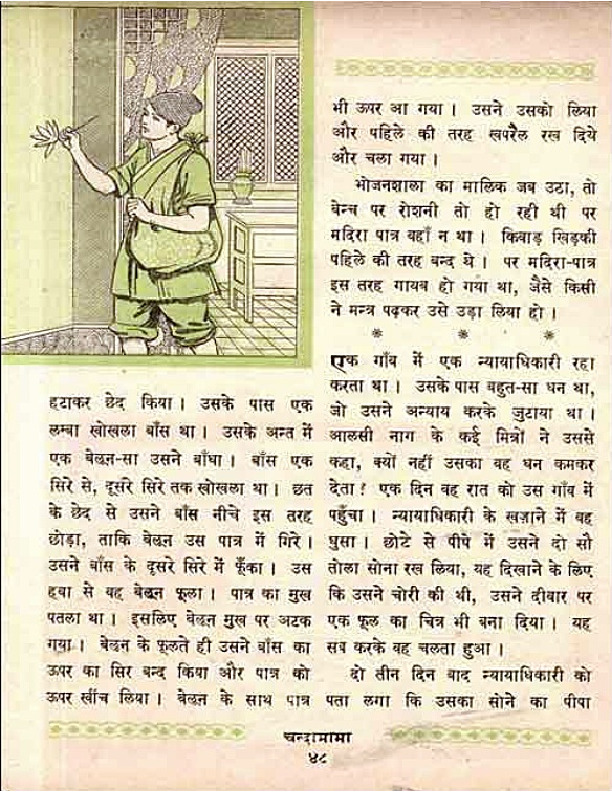 हटाकर छेद किया। उसके पास एक
लम्बा खोखला बाँस था। उसके अन्त में
एक बेलून-सा उसने बाँधा। बाँस एक
सिरे से, दूसरे सिरे तक खोखला था। छत
के छेद से उसने बाँस नीचे इस तरह
छोड़ा, ताकि बेलून उस पात्र में गिरे।
उसने बाँस के दूसरे सिरे में फूँका। उस
हवा से वह बेलून फूला। पात्र का मुख
पतला था। इसलिए बेलून मुख पर अटक
गया। बेलून के फूलते ही उसने बाँस का
ऊपर का सिर बन्द किया और पात्र को
ऊपर खींच लिया। बेलून के साथ पात्र
भी ऊपर आ गया। उसने उसको लिया
और पहिले की तरह खपरैल रख दिये
और चला गया।
भोजनशाला का मालिक जब उठा, तो
बेन्च पर रोशनी तो हो रही थी पर
मदिरा पात्र वहाँ न था। किवाड़ खिड़की
पहिले की तरह बन्द थे। पर मदिरा-पात्र
इस तरह गायब हो गया था, जैसे किसी
ने मन्त्र पढ़कर उसे उड़ा लिया हो।
* * *
एक गाँव में एक न्यायाधिकारी रहा
करता था। उसके पास बहुत-सा धन था,
जो उसने अन्याय करके जुटाया था।
आलसी नाग के कई मित्रों ने उससे
कहा, क्यों नहीं उसका वह धन कमकर
देता! एक दिन वह रात को उस गाँव में
पहुँचा। न्यायाधिकारी के खज़ाने में वह
घुसा। छोटे से पीपे में उसने दो सौ
तोला सोना रख लिया, यह दिखाने के लिए
कि उसने चोरी की थी, उसने दीवार पर
एक फूल का चित्र भी बना दिया। यह
सब करके वह चलता हुआ।
दो तीन दिन बाद न्यायाधिकारी को
पता लगा कि उसका सोने का पीपा
चन्दामामा
४८